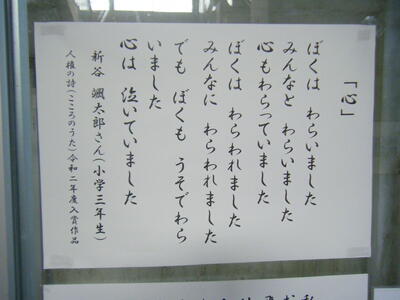 「心」
ぼくは わらいました
みんなと わらいました
心もわらっていました
ぼくは わらわれました
みんなに わらわれました
でも ぼくも うそでわら
いました
心は 泣いていました
新谷 颯太郎さん(小学三年生)
人権の詩(こころのうた)令和二年度入賞作品